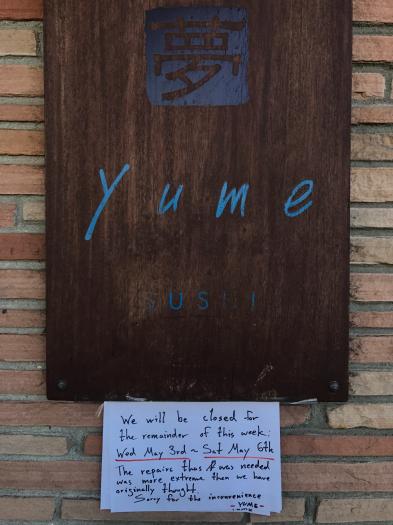 夢
yume
SUSHI
We will be closed for
the remainder of this week:
Wed May 3rd ~ Sat May 6th
The repairs that was needed
was more extreme then we have
originally thought.
Sorry for the inconvenience
- YUME -